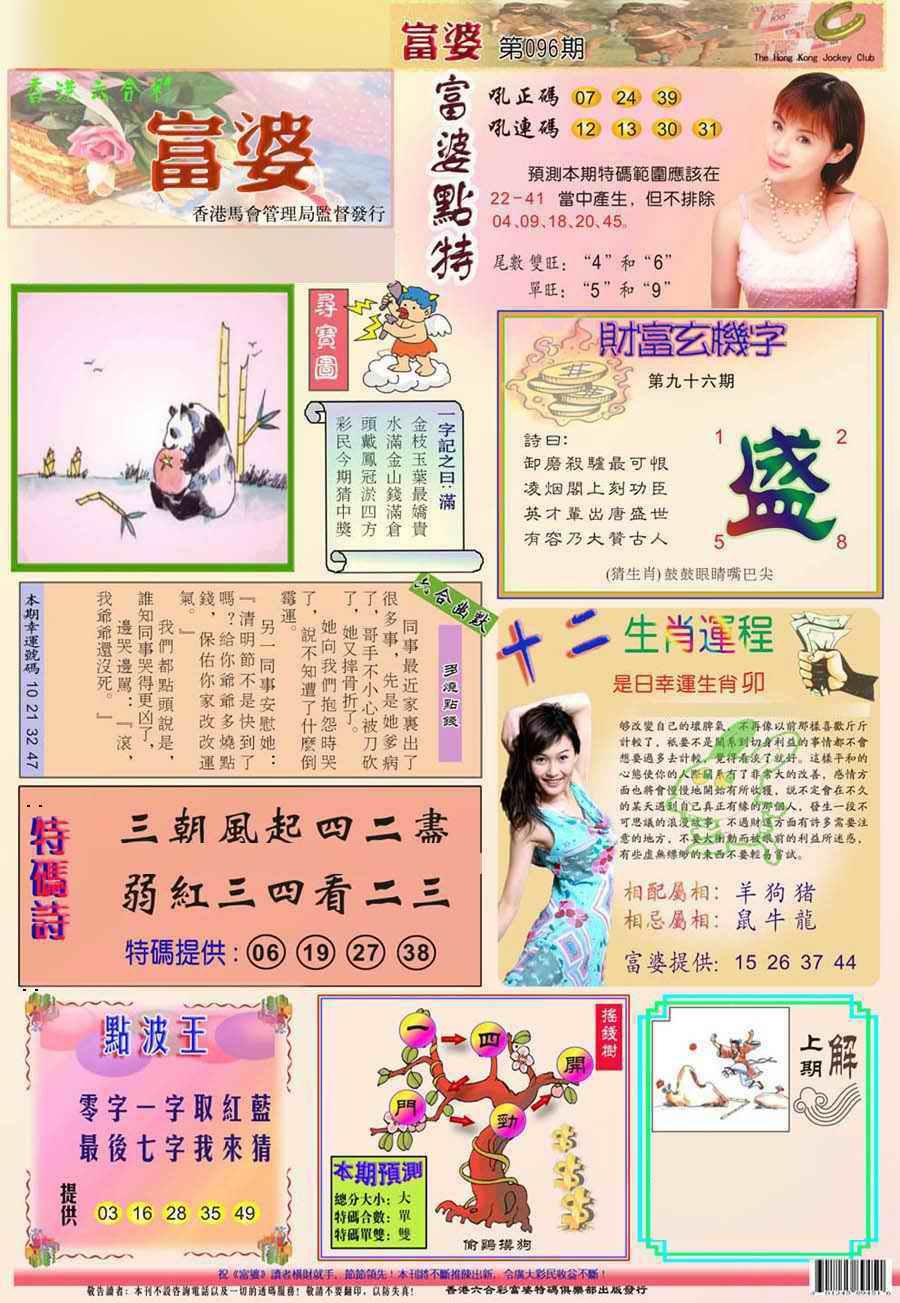 富婆 第096期
The Hong Kong Jockey Club
香港六合彩
富婆
香港馬會管理局監督發行
富婆點特
吼正碼 07 24 39
吼連碼 12 13 30 31
預測本期特碼範圍應該在
22-41 當中產生，但不排除
04、09、18、20、45。
尾數雙旺：“4”和“6”
單旺：“5”和“9”
尋寶圖
一字記之曰：滿
金枝玉葉最嬌貴
水滿金山錢滿倉
頭戴鳳冠淤四方
彩民今期猜中獎
財富玄機字
第九十六期
詩曰：
卸磨殺驢最可恨
凌烟閣上刻功臣
英才輩出唐盛世
有容乃大贊古人
1 2
盛
5 8
(猜生肖)鼓鼓眼睛嘴巴尖
六合幽默
多燒點錢
同事最近家裏出了
很多事，先是她爹病
了，哥手不小心被刀砍
了，她又摔骨折了。
她向我們抱怨時哭
了，說不知遭了什麼倒
霉運。
另一同事安慰她：
『清明節不是快到了
嗎？給你爺爺多燒點
錢，保佑你家改改運
氣。』
我們都點頭說是，
誰知同事哭得更凶了，
邊哭邊罵：『滾，
我爺爺還沒死。』
本期幸運號碼 10 21 32 47
十二生肖運程
是日幸運生肖 卯
够改變自己的壞脾氣，不再像以前那樣喜歡斤斤
計較了，祇要不是關系到切身利益的事情都不會
想要過多去計較，覺得看淡了就好。這樣平和的
心態使你的人際關系有了非常大的改善，感情方
面也將會慢慢地開始有所收獲，說不定會在不久
的某天遇到自己真正有緣的那個人，發生一段不
可思議的浪漫故事，不過財運方面有許多需要注
意的地方，不要太衝動而被眼前的利益所迷惑，
有些虛無縹緲的東西不要輕易嘗試。
相配屬相：羊狗猪
相忌屬相：鼠牛龍
富婆提供：15 26 37 44
特碼詩
三朝風起四二盡
弱紅三四看二三
特碼提供：06 19 27 38
點波王
零字一字取紅藍
最後七字我來猜
提供 03 16 28 35 49
搖錢樹
一 四 開
門 勁
本期預測
總分大小：大
特碼合數：單
特碼單雙：雙
偷鷄摸狗
上期解
祝《富婆》讀者橫財就手，節節領先！本刊將不斷推陳出新，令廣大彩民收益不斷！
敬告讀者：本刊不設咨詢電話以及一切的透碼服務！敬請不要翻印，以防失真！ 香港六合彩富婆特碼俱樂部出版發行